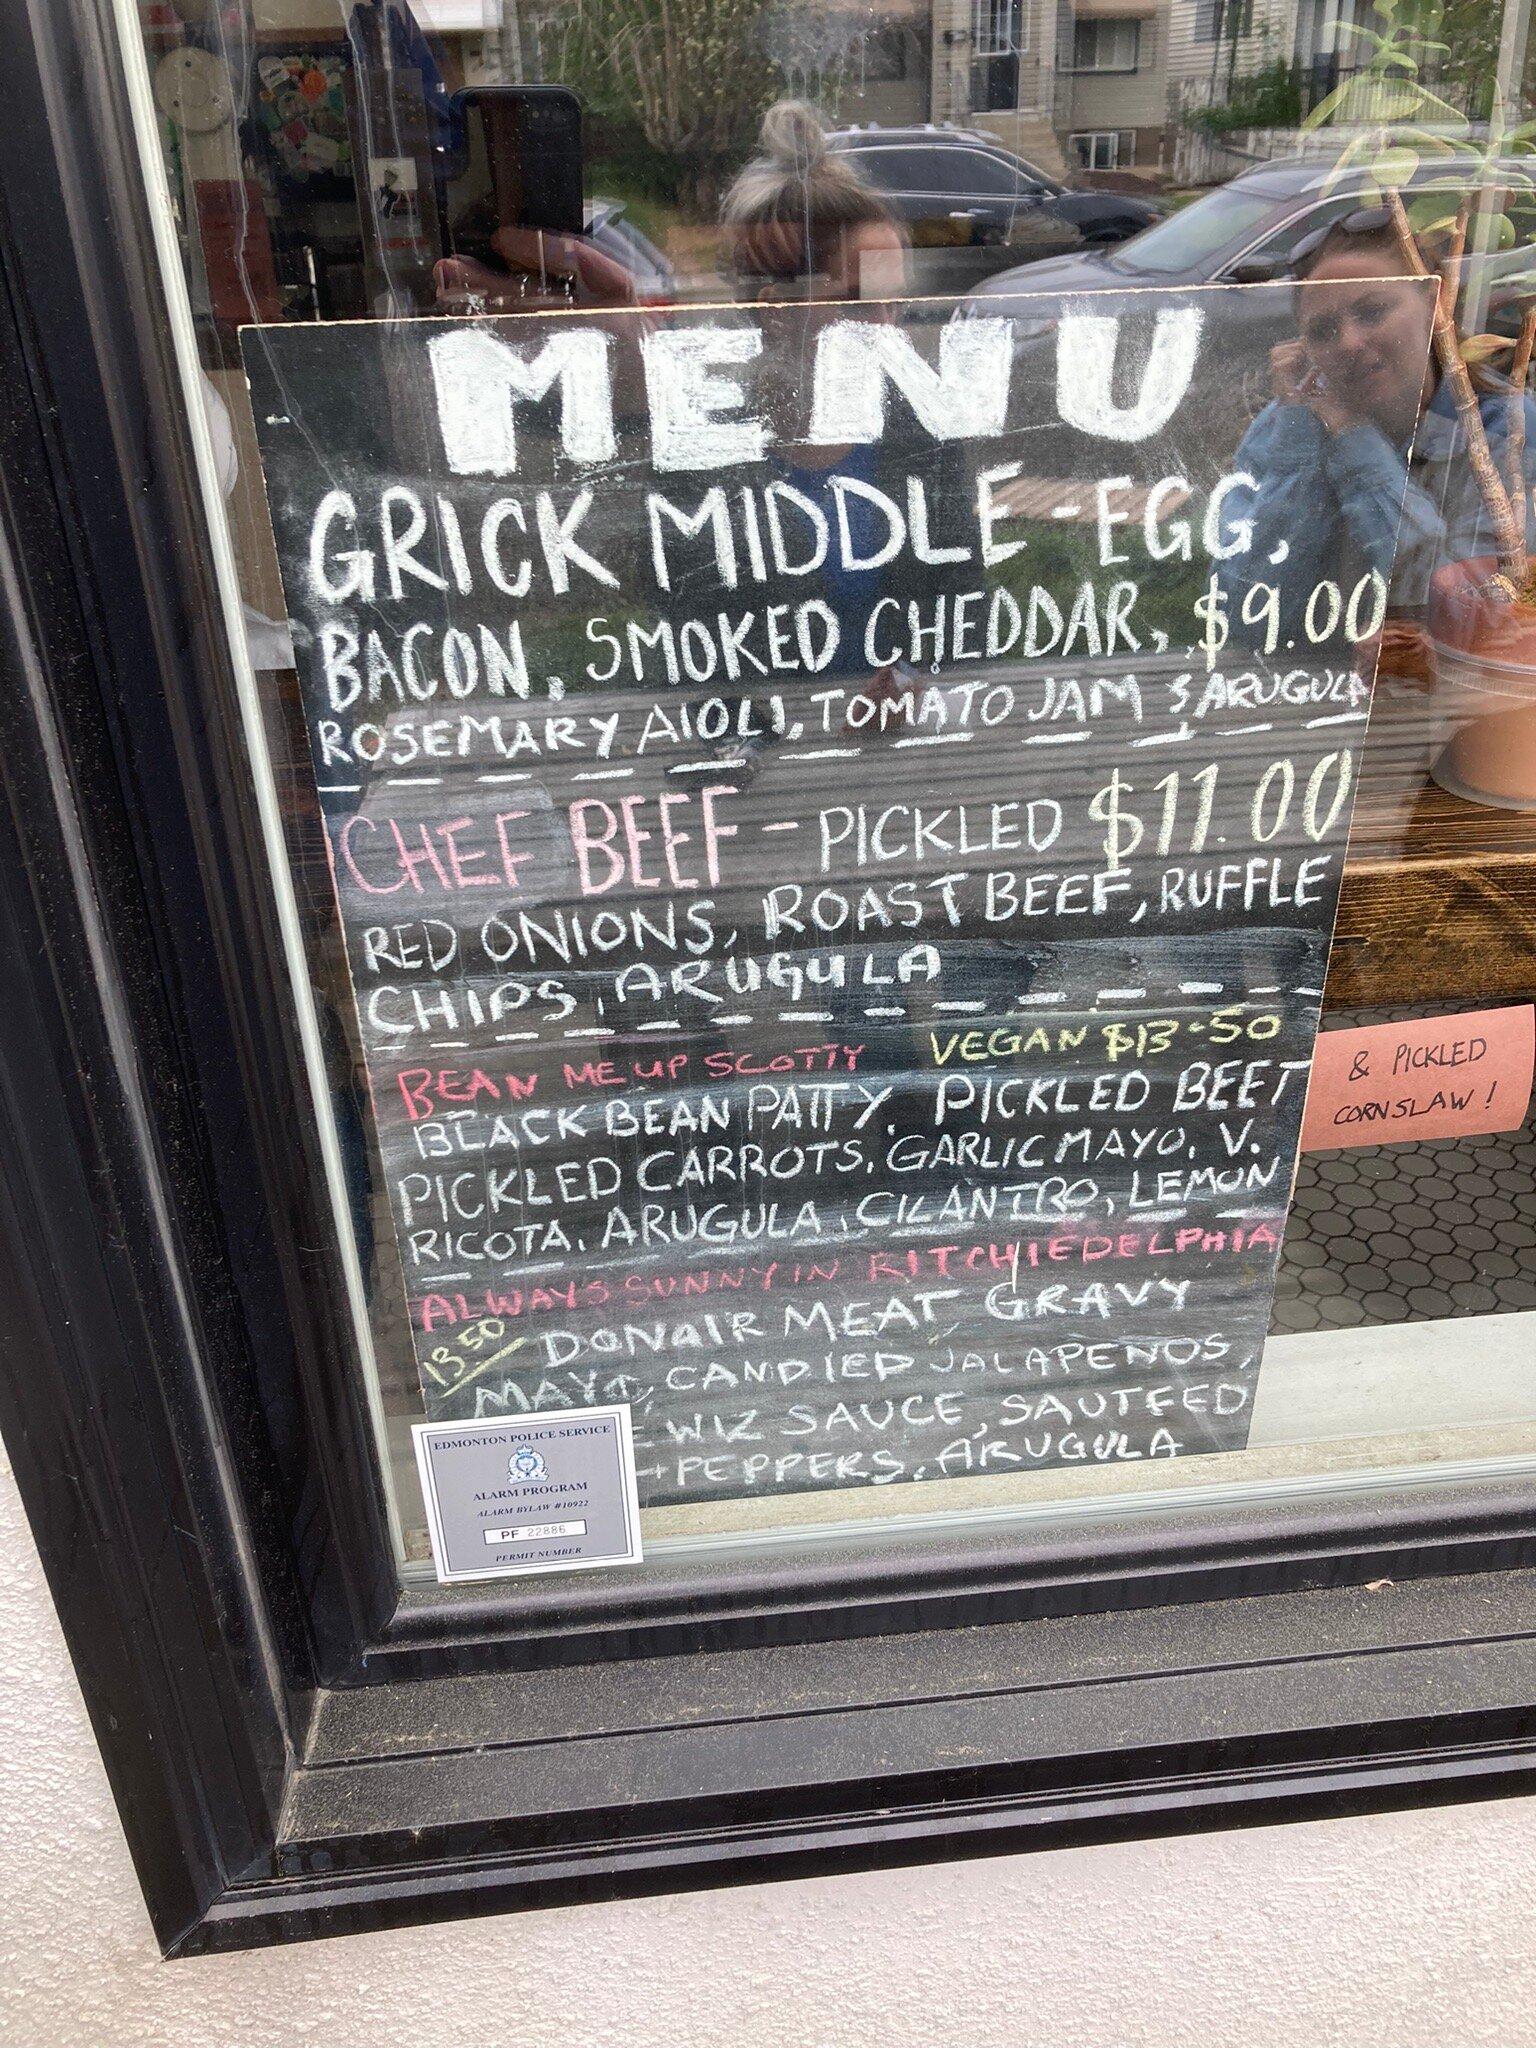 MENU
GRICK MIDDLE - EGG,
BACON, SMOKED CHEDDAR, $9.00
ROSEMARY AIOLI, TOMATO JAM & ARUGULA
CHEF BEEF - PICKLED $11.00
RED ONIONS, ROAST BEEF, RUFFLE
CHIPS, ARUGULA
BEAN ME UP SCOTTY VEGAN $13.50
BLACK BEAN PATTY, PICKLED BEET
PICKLED CARROTS, GARLIC MAYO, V.
RICOTA, ARUGULA, CILANTRO, LEMON
ALWAYS SUNNY IN RITCHIEDELPHIA
13.50 DONAIR MEAT GRAVY
MAYO, CANDIED JALAPENOS,
WIZ SAUCE, SAUTEED
+ PEPPERS, ARUGULA
& PICKLED
CORNSLAW!
EDMONTON POLICE SERVICE
ALARM PROGRAM
ALARM BYLAW #10922
PF 22886
PERMIT NUMBER